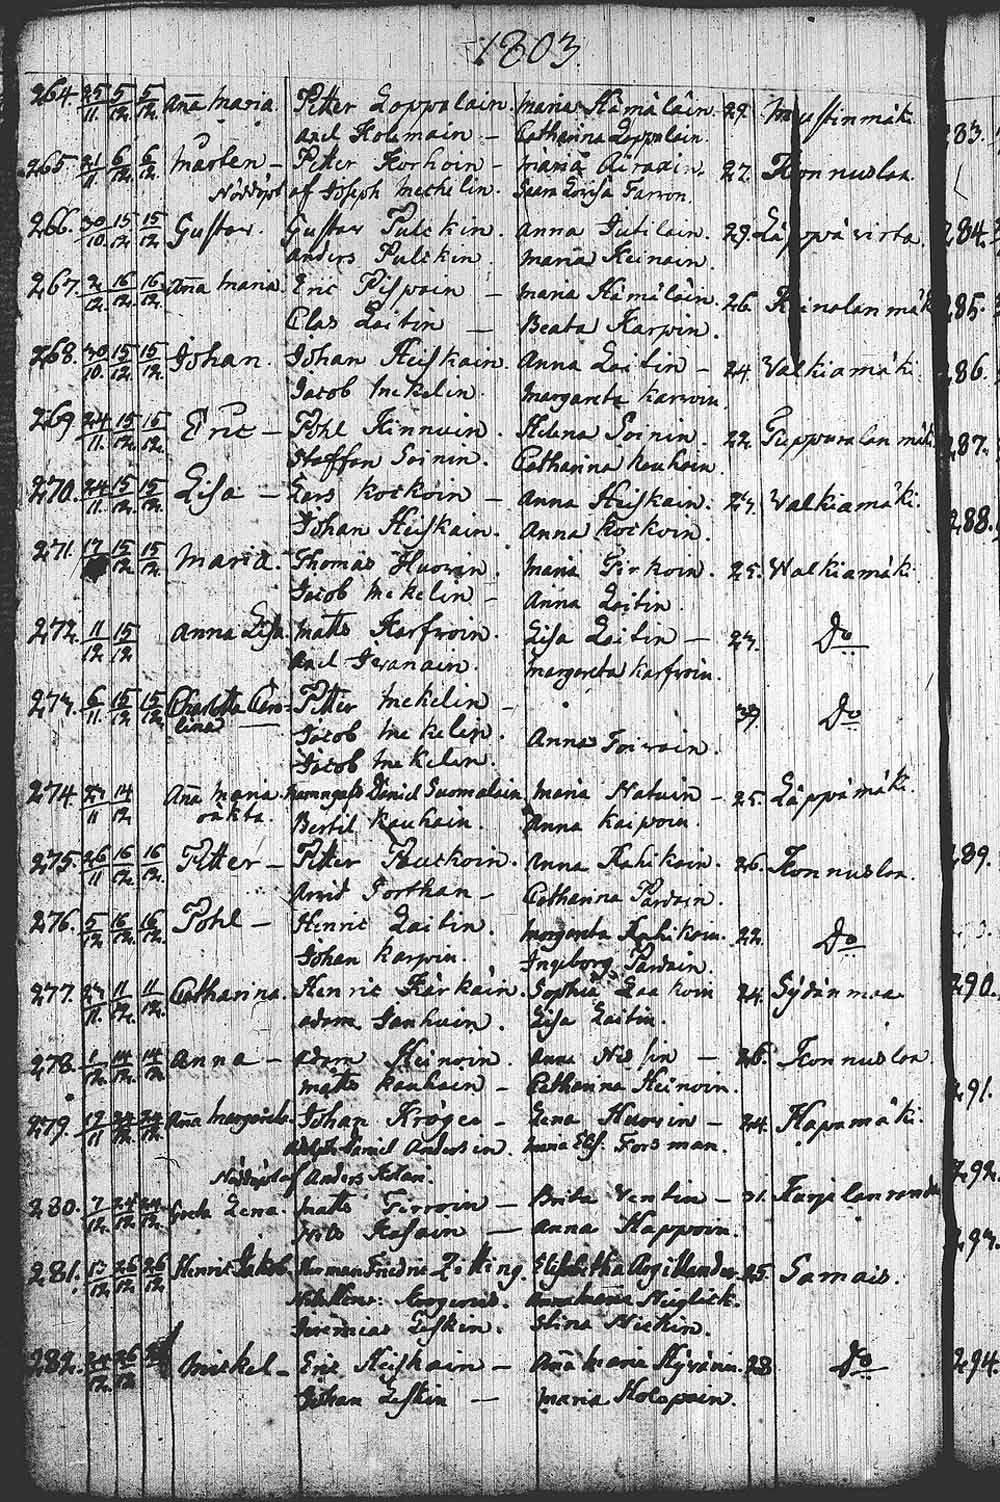 1803.
264. 25/11 5/12 5/12 Aña Maria. Petter Loppolain. Maria Hämäläin. 29. Mustinmäki
Axel Holmain – Catharina Lopplain.
265. 21/11 6/12 6/12 Mårten – Petter Korhoin – Maria 27. Konnuslax
Nöddöpt af Joseph Mechelin. Sara Lovisa Farron.
266. 30/10 15/12 15/12 Gustav. Gustav Pulckin. Anna Jutilain. 29. Läppävirta.
Anders Pulckin. Maria Keinain.
267. 2/12 16/12 16/12 Aña Maria. Eric Pispain – Maria Hämäläin. 26. Keinolanmäki
Clas Laitin – Beata Karpin.
268. 30/10 15/12 15/12 Johan. Johan Heiskain. Anna Laitin – 24. Valkiamäki.
Jacob Mekelin. Margareta Karvoin
269. 24/11 15/12 15/12 Eric – Pohl Kinnuin. Helena Soinin. 22.
Staffan Soinin. Catharina Kauhain.
270. 24/11 15/12 15/12 Lisa – Lars Kockoin – Anna Heiskain. 27. Valkiamäki.
Johan Heiskain. Anna Kockoin.
271. 17 15/12 15/12 Maria. Thomas Huovin. Maria Pirkoin. 25. Walkiamäki.
Jacob Mekelin – Anna Laitin.
272. 11/12 15/12 Anna Lisa. Matts Karfvoin. Lisa Laitin – 27. Do
Axel Ikvanain. Margareta Karfvoin.
273. 6/11 15/12 15/12 Charlotta Caro= Petter Mekelin – 39 Do
lina – Jacob Mekelin. Anna Toivain.
Jacob Mekelin.
274. 27/11 14/12 Aña Maria. Daniel Suomalain. Maria Natuin – 25. Läppämäki.
oäkta. Bertil Kauhain. Anna Kaipoin.
275. 26/11 16/12 16/12 Petter – Petter Pauckoin. Anna Kahikain. 26. Konnuslax.
Arvid Porthan – Catharina Pardain.
276. 5/12 16/12 16/12 Pohl – Henric Laitin. Margareta Kahikain. 22. Do
Johan Karpin. Ingeborg Pardain.
277. 27/11 11/12 11/12 Catharina. Henric Kärkäin. Sophia Laakoin 24. Sydänmaa
Adam Janhuin. Lisa Laitin.
278. 1/12 14/12 14/12 Anna – Adam Heinoin. Anna Nissin – 26. Konnuslax.
Matts Kauhain – Catharina Heinoin.
279. 19/11 24/12 24/12 Aña Margareta. Johan Kröger – Lena Huovin – 24. Hapamäki.
Adolph Daniel Andersin. Anna Elis. Forsman.
Nöddöpt af Anders Kolari.
280. 7/12 24/12 24/12 Greta Lena. Matts Tervoin – Brita Ventin – 31. Karjalanranda
Nils Kasain – Anna Happoin.
281. 13/12 26/12 26/12 Henric Jakob. Herman Fredric Zitting. Elisabetha Argillander. 25. Samais.
Anna Maria Nieglick.
Jeremias Leskin. Stina Miekin.
282. 24/12 26/12 Mickel – Eric Heiskain – Aña Maria Hyvärin. 23 Do
Johan Leskin – Maria Holopain.
283.
284.
285.
286.
287.
288.
289.
290.
291.
292.
293.
294.